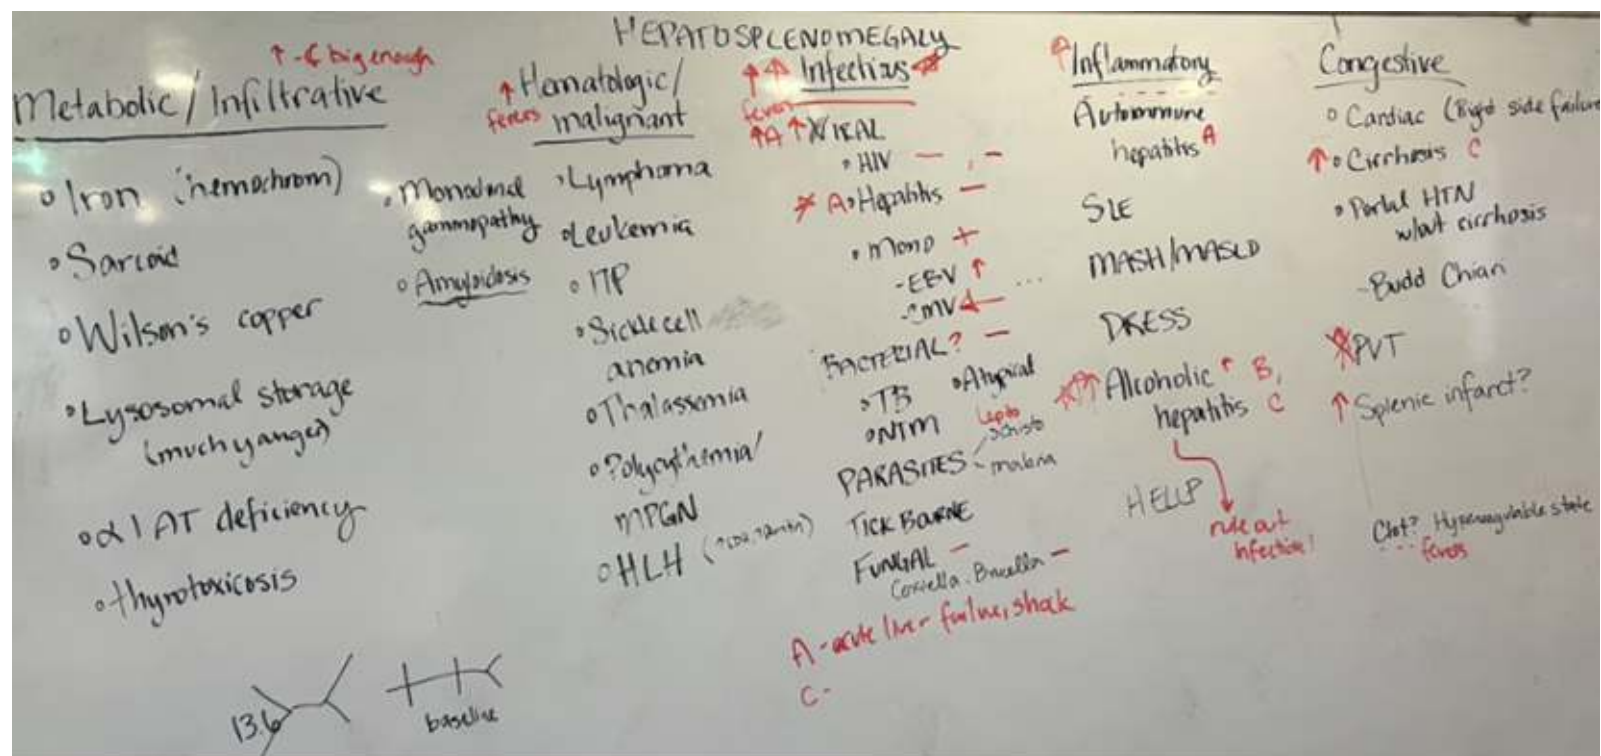 HEPATOSPLENOMEGALY
↑ - big enough
Metabolic / Infiltrative
• Iron (hemochrom)
• Sarcoid
• Wilson's copper
• Lysosomal storage
(much yanger)
• α1 AT deficiency
• thyrotoxicosis
• Monoclonal
gammopathy
• Amyloidosis
13.6
baseline
↑ Hematologic/
fevers malignant
• Lymphoma
• Leukemia
• ITP
• Sickle cell
anemia
• Thalassemia
• Polycythemia/
MPGN
• HLH
↑↑ Infectious
fever
↑A ↑ VIRAL
• HIV — , —
A • Hepatitis —
• Mono +
- EBV ↑ ...
- CMV —
BACTERIAL? —
• TB • Atypical
• NTM Lepto
schisto
PARASITES - malaria
TICK BOURNE
FUNGAL —
Coxiella. Brucella —
A - acute liver failure, shock
C -
Inflammatory
Autoimmune
hepatitis A
SLE
MASH/MASLD
DRESS
↑ Alcoholic ↑ B,
hepatitis C
HELLP
rule out
infection!
Congestive
• Cardiac (Right side failure
↑ • Cirrhosis C
• Portal HTN
w/out cirrhosis
- Budd Chiari
PVT
↑ Splenic infarct?
Clot? Hypercoagulable state
fevers